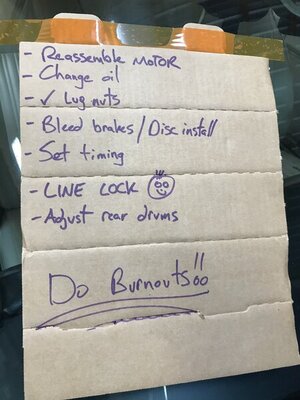 - Reassemble MOTOR
- Change oil
- ✓ Lug nuts
- Bleed brakes / Disc install
- Set timing
- LINE LOCK
- Adjust rear drums
Do Burnouts!!